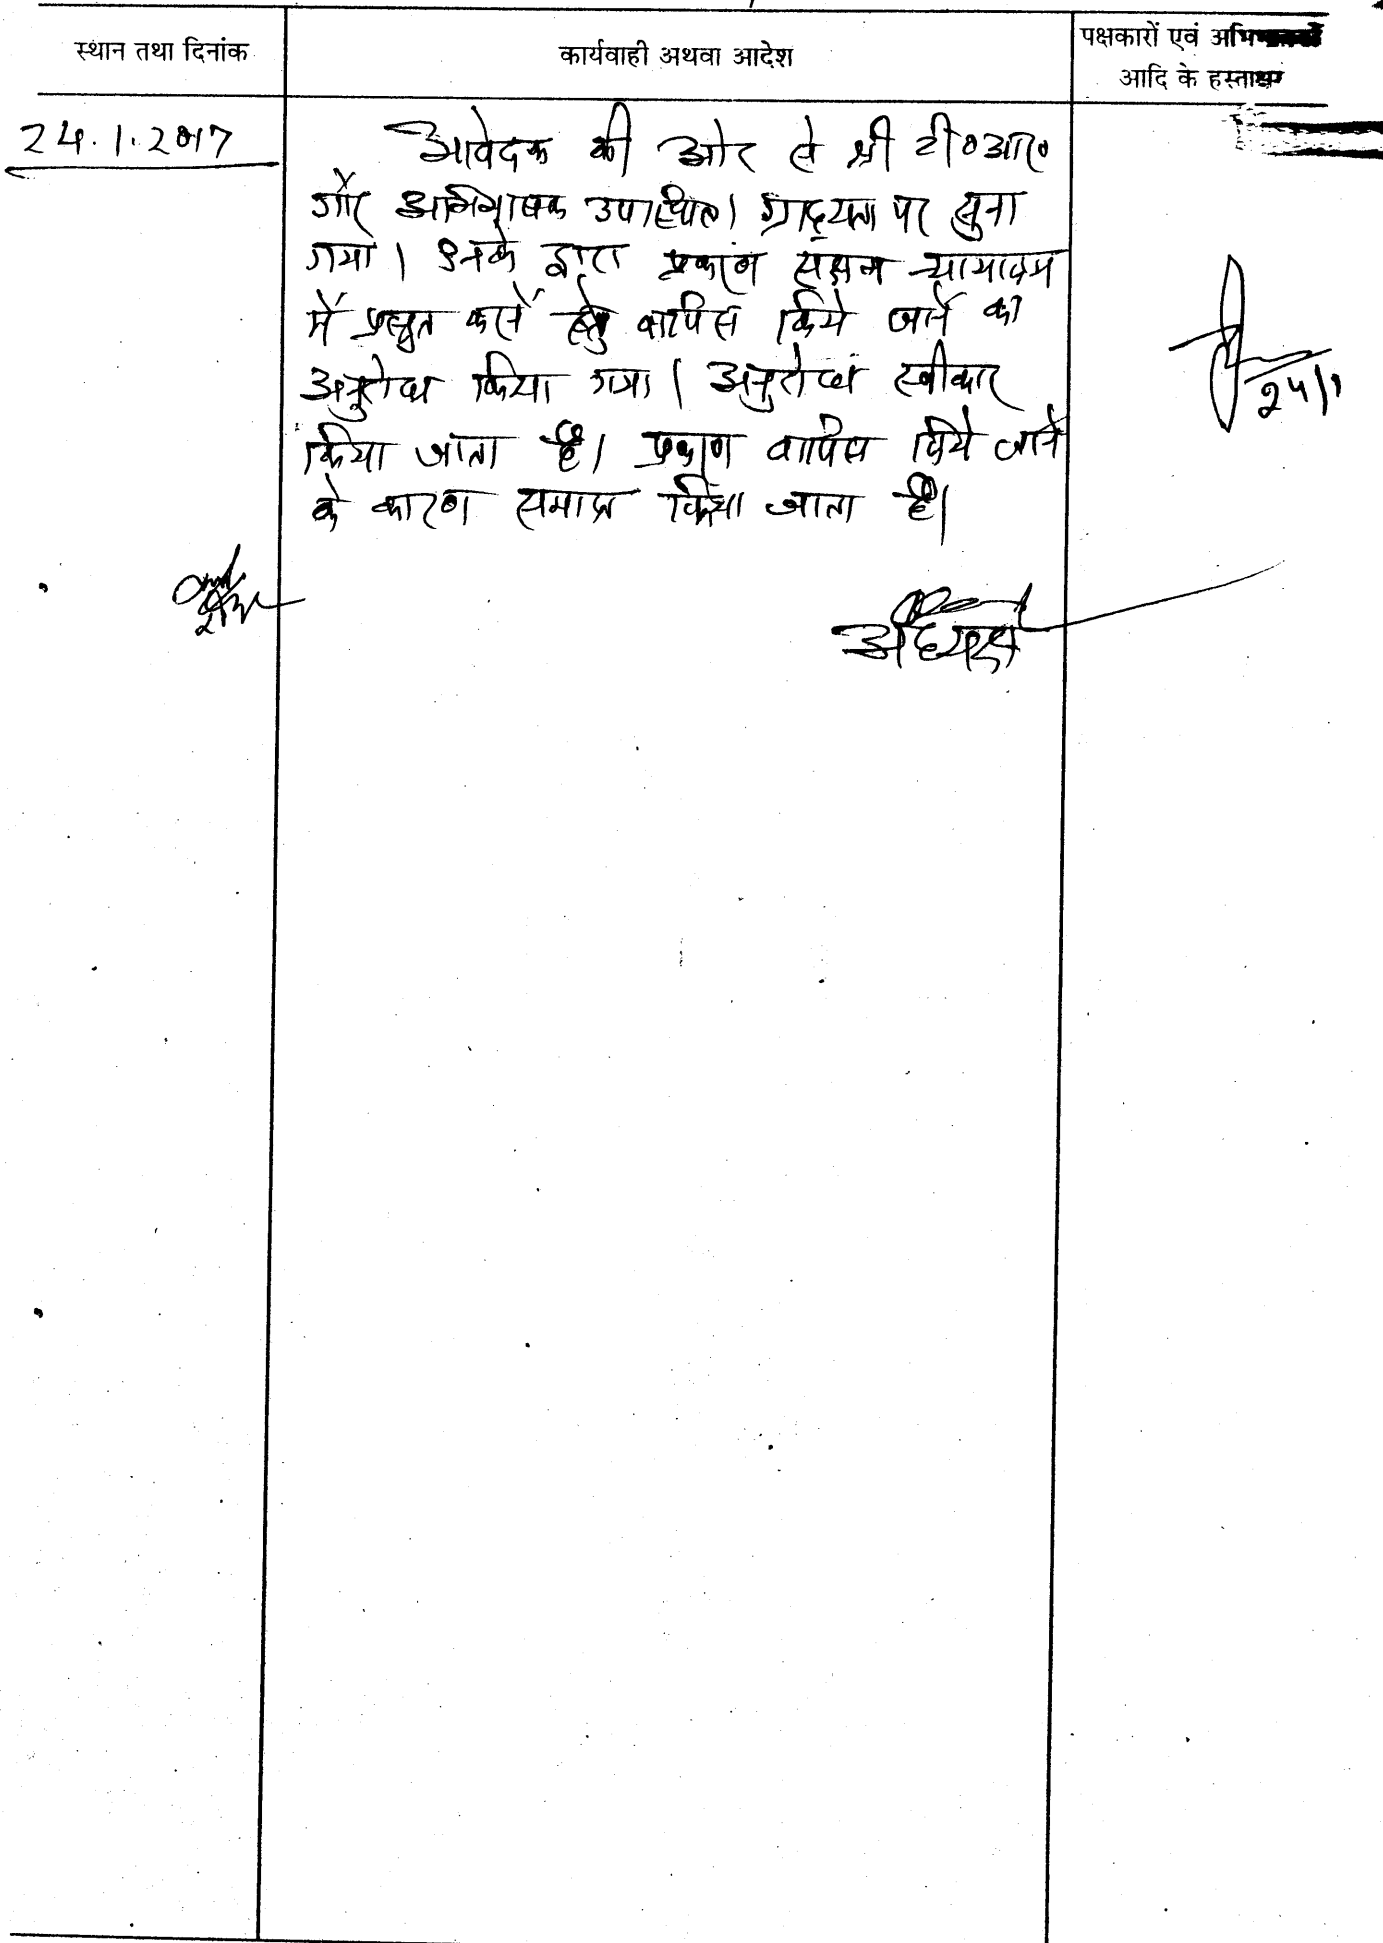 स्थान तथा दिनांक
कार्यवाही अथवा आदेश
पक्षकारों एवं
आदि के हस्ताक्षर
24.1.2017
आवेदक की ओर से श्री टी०आर०
गौर अभिभाषक उपस्थित। ग्राह्यता पर सुना
गया। उनके द्वारा प्रकरण सक्षम न्यायालय
में प्रस्तुत करने हेतु वापिस किये जाने का
अनुरोध किया गया। अनुरोध स्वीकार
किया जाता है। प्रकरण वापिस किये जाने
के कारण समाप्त किया जाता है।
अध्यक्ष